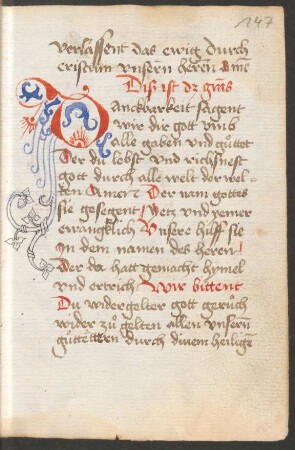 147
verlassent das ewig durch
cristum unsern herren Ame
Diß ist dz gras
Danckberkeit sagent
wir dir gott umb
alle gaben und guttet
Der du lebst und richsnest
gott durch alle welt der wel-
ten Amen Der nam gottes
sie gesegent Yetz und yemer
ewangklich Unsere hilff sie
In dem namen des herren
Der da hatt gemacht hymel
und ertrich Wir bittent
Du widergelter gott geruch
wider zu gelten allen unsern
guttettern durch dinem heiligen